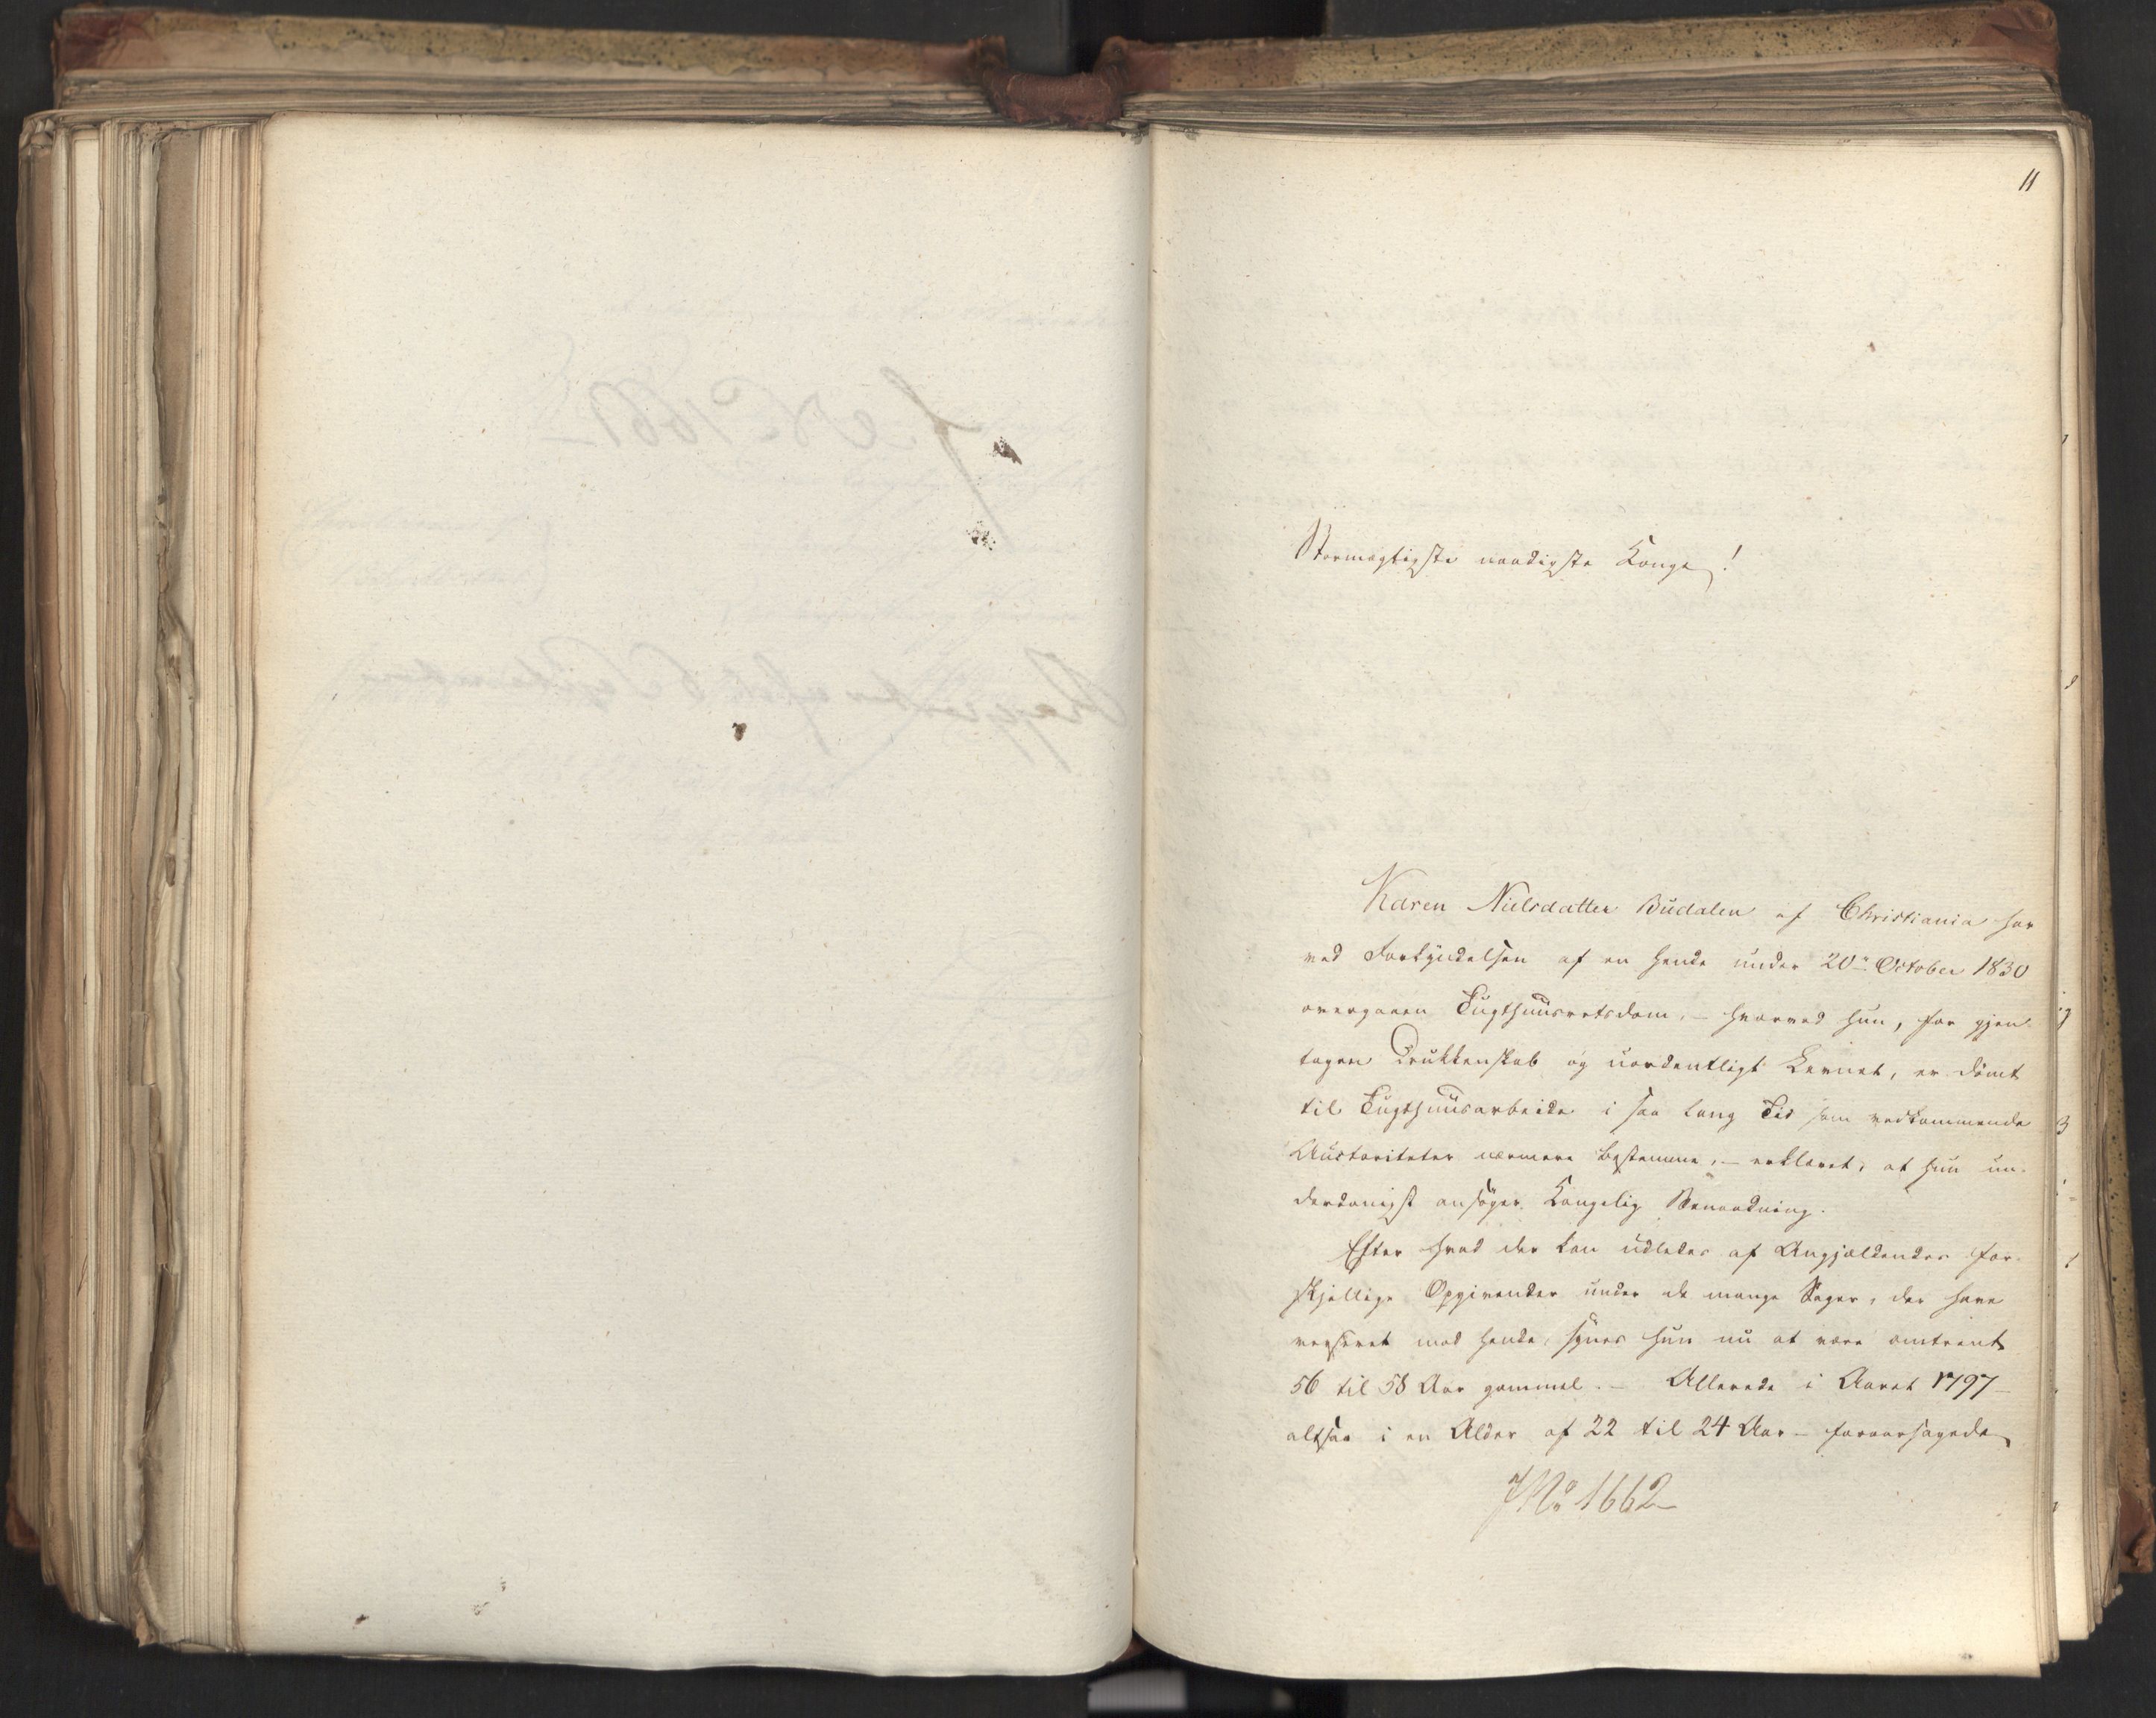 11
Stormægtigste naadigste Konge!
Karen Nielsdatter Büdalen af Christiania har
ved Forkyndelsen af en hende under 20de October 1830
overgaaen Tugthuusretsdom, – hvorved hun, for gjen-
tagen Drukkenskab og uordentligt Levnet, er dömt
til Tugthuusarbeide i saa lang Tid som vedkommende
Auctoriteter nærmere bestemme, – erklæret, at hun un-
derdanigst ansöger Kongelig Benaadning.
Efter hvad der kan udledes af Angjældendes for-
skjellige Opgivender under de mange Sager, der have
verseret mod hende, synes hun nu at være omtrent
56 til 58 Aar gammel. – Allerede i Aaret 1797 –
altsaa i en Alder af 22 til 24 Aar – foraarsagede
J No 1662